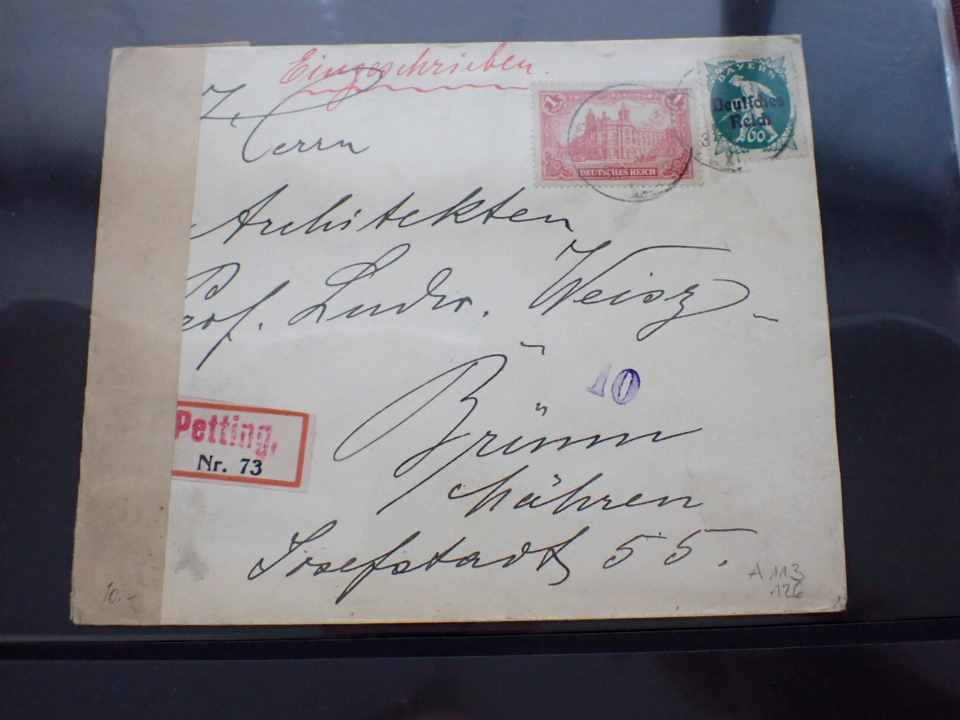 Eingeschrieben.
1 1
DEUTSCHES REICH
BAYERN
Deutsches
Reich
60
Herrn
Architekten
Prof. Ludw. Weisz
10
Brünn
Petting,
Nr. 73
Mähren
Josefstadt 55.
A 113
126
10.-